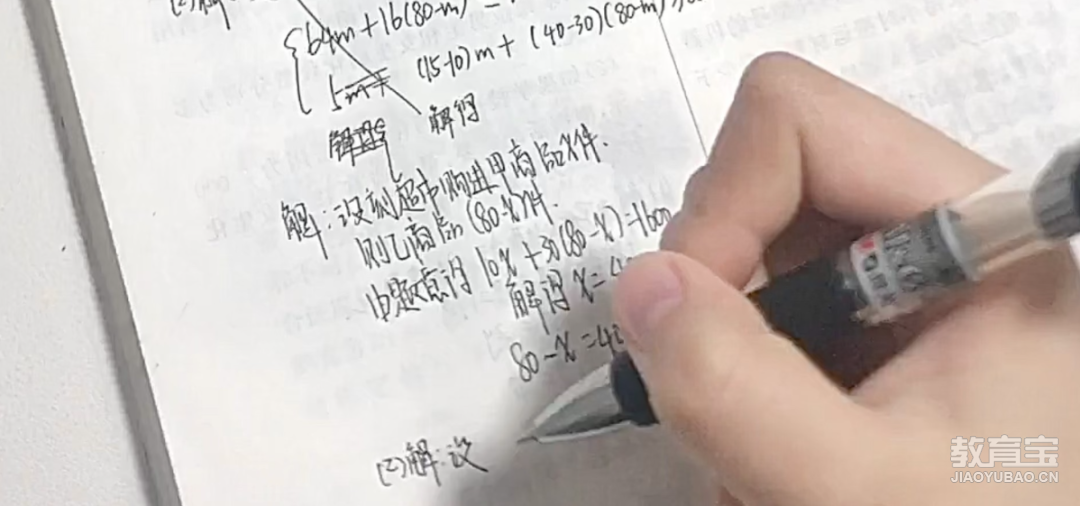 (2)解
64m+16(80-m)
(15-10)m+(40-30)(80-m)
5m+
解得
解:设则超市购进甲商品x件.
则乙商品(80-x)件.
由题意得 10x+30(80-x)=1600
解得 x=4
80-x=40
(2)解:设
教育宝
JIAOYUBAO.CN